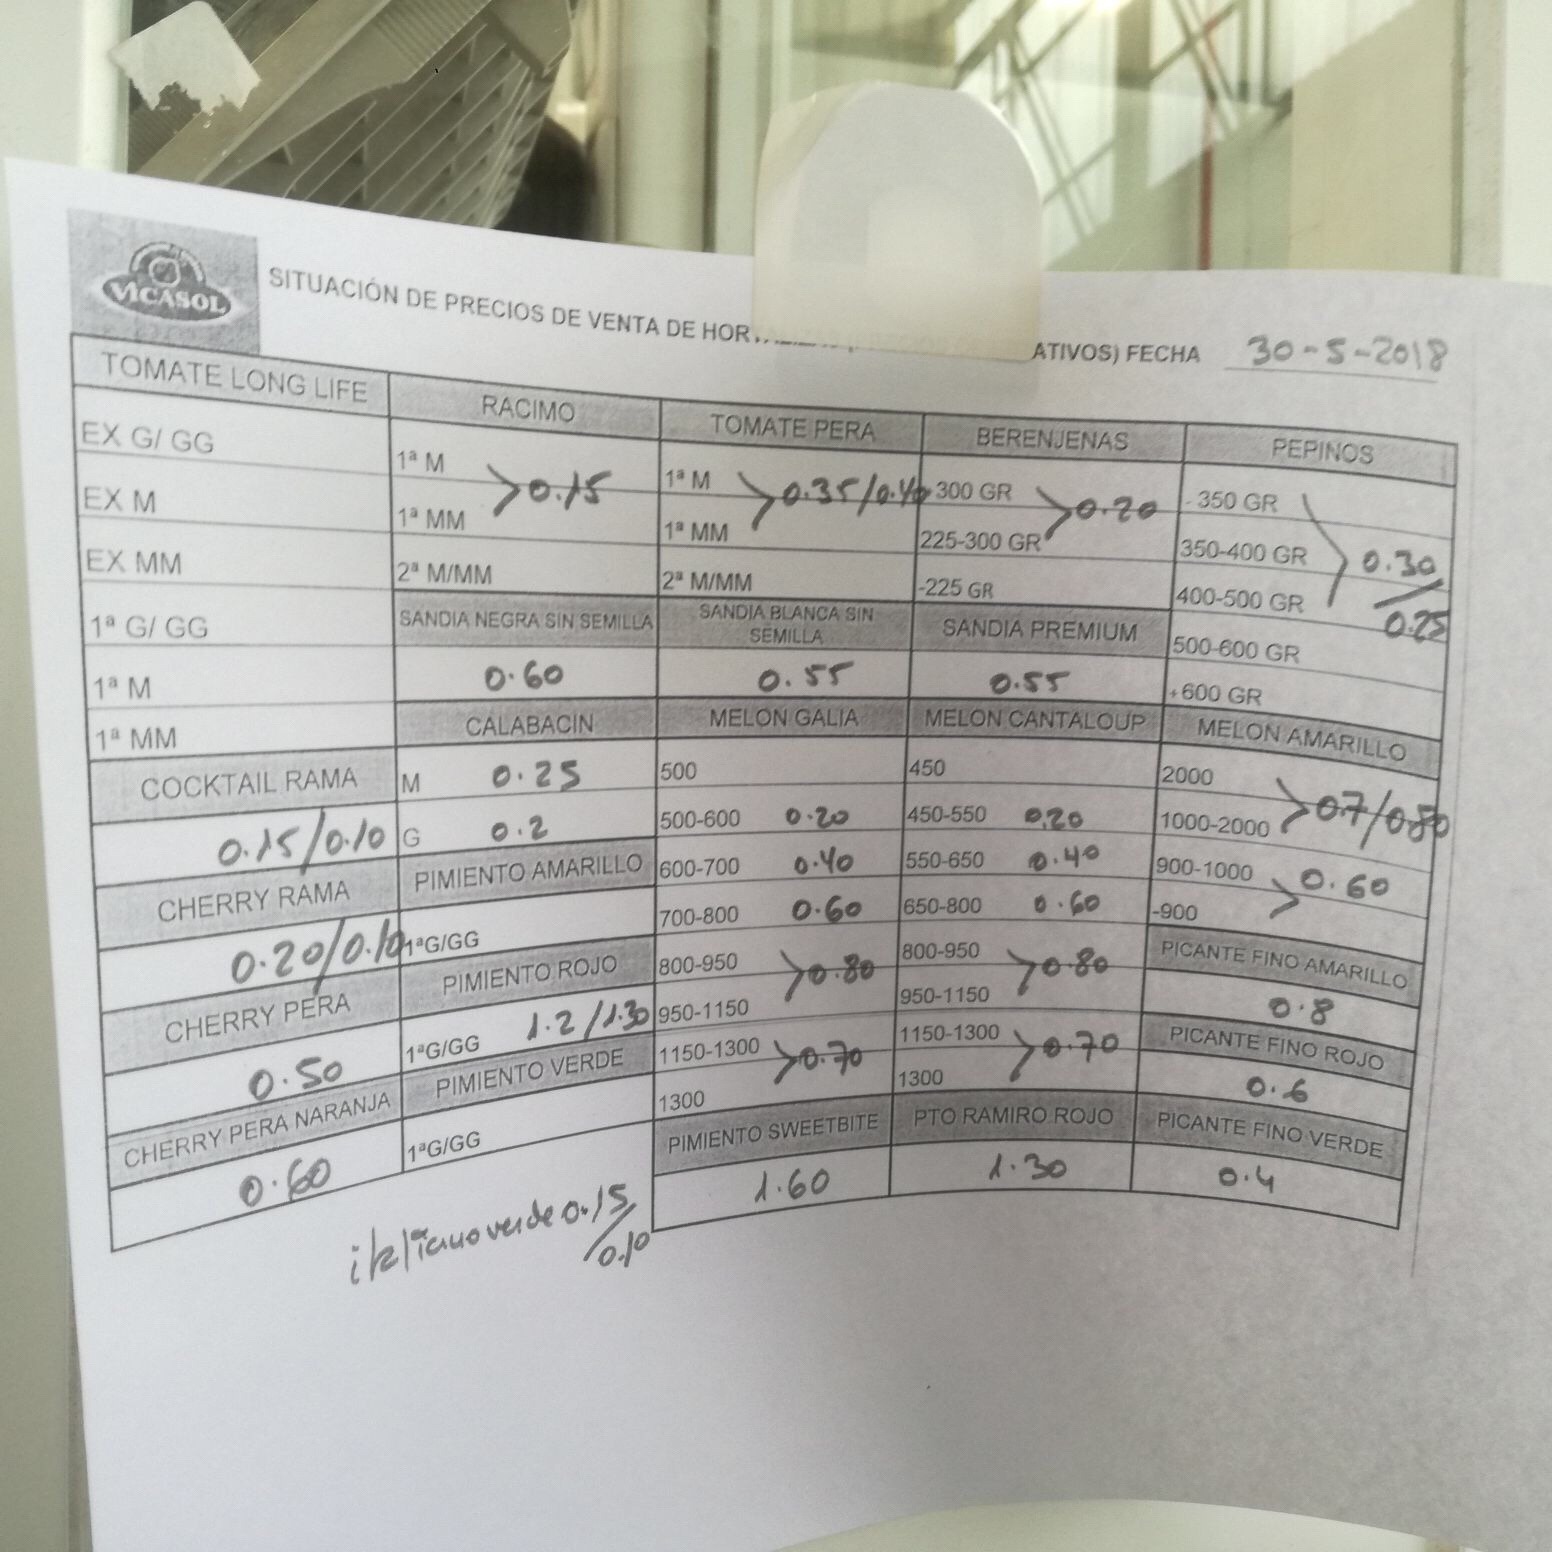 VICASOL
SITUACIÓN DE PRECIOS DE VENTA DE HORTALIZAS
ATIVOS) FECHA 30-5-2018
TOMATE LONG LIFE
EX G/ GG
EX M
EX MM
1ª G/ GG
1ª M
1ª MM
COCKTAIL RAMA
0.15/0.10
CHERRY RAMA
0.20/0.10
CHERRY PERA
0.50
CHERRY PERA NARANJA
0.60
RACIMO
1ª M
>0.15
1ª MM
2ª M/MM
SANDIA NEGRA SIN SEMILLA
0.60
CALABACIN
M 0.25
G 0.2
PIMIENTO AMARILLO
1ªG/GG
PIMIENTO ROJO
1ªG/GG 1.2/1.30
PIMIENTO VERDE
1ªG/GG
italiano verde 0.15/
0.10
TOMATE PERA
1ª M
>0.35/0.40
1ª MM
2ª M/MM
SANDIA BLANCA SIN
SEMILLA
0.55
MELON GALIA
500
500-600 0.20
600-700 0.40
700-800 0.60
800-950
>0.80
950-1150
1150-1300
>0.70
1300
PIMIENTO SWEETBITE
1.60
BERENJENAS
300 GR
>0.20
225-300 GR
-225 GR
SANDIA PREMIUM
0.55
MELON CANTALOUP
450
450-550 0.20
550-650 0.40
650-800 0.60
800-950
>0.80
950-1150
1150-1300
>0.70
1300
PTO RAMIRO ROJO
1.30
PEPINOS
- 350 GR
350-400 GR
0.30/
400-500 GR
0.25
500-600 GR
+600 GR
MELON AMARILLO
2000
>0.7/0.80
1000-2000
900-1000
>0.60
-900
PICANTE FINO AMARILLO
0.8
PICANTE FINO ROJO
0.6
PICANTE FINO VERDE
0.4